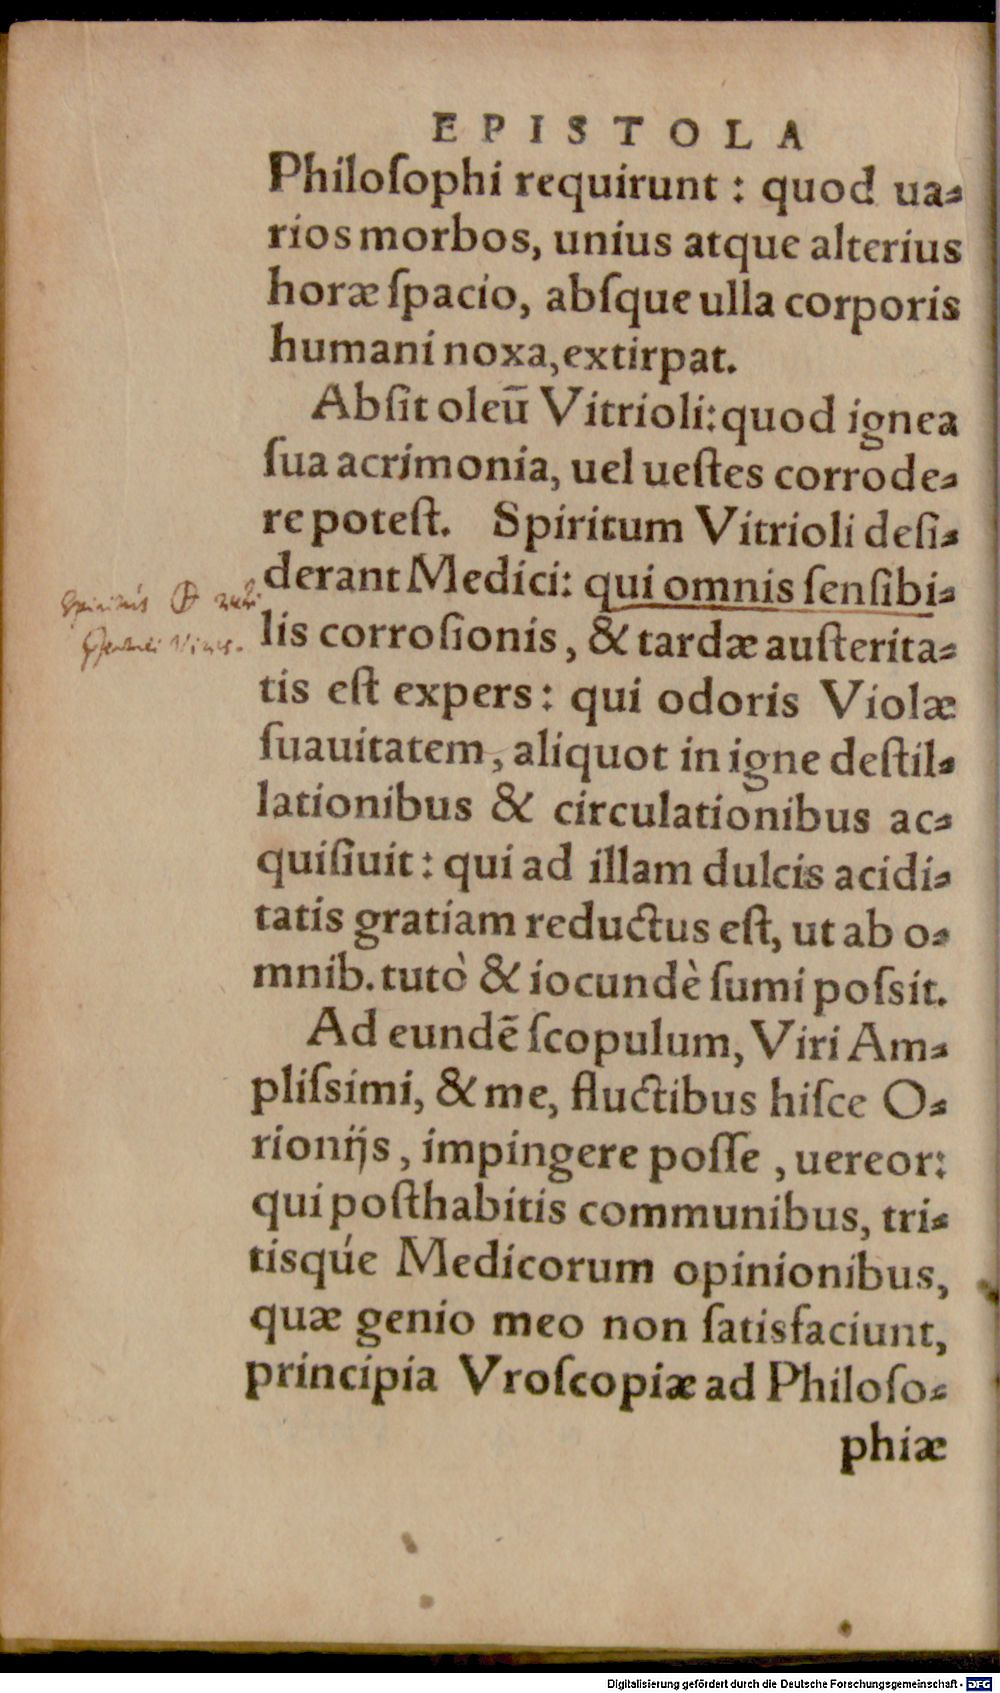 EPISTOLA
Philoſophi requirunt: quod ua⸗
rios morbos, unius atque alterius
horæ ſpacio, abſque ulla corporis
humani noxa, extirpat.
Abſit oleū Vitrioli: quod ignea
ſua acrimonia, uel ueſtes corrode⸗
re poteſt. Spiritum Vitrioli deſi⸗
derant Medici: qui omnis ſenſibi⸗
lis corroſionis, & tardæ auſterita⸗
tis eſt expers: qui odoris Violæ
ſuauitatem, aliquot in igne deſtil⸗
lationibus & circulationibus ac⸗
quiſiuit: qui ad illam dulcis acidi⸗
tatis gratiam reductus eſt, ut ab o⸗
mnib. tutò & iocundè ſumi poſsit.
Ad eundē ſcopulum, Viri Am⸗
pliſsimi, & me, fluctibus hiſce O⸗
rionijs, impingere poſſe, uereor:
qui poſthabitis communibus, tri⸗
tisq́ue Medicorum opinionibus,
quæ genio meo non ſatisfaciunt,
principia Vroſcopiæ ad Philoſo⸗
phiæ
Spiritus
Digitalisierung gefördert durch die Deutsche Forschungsgemeinschaft - DFG